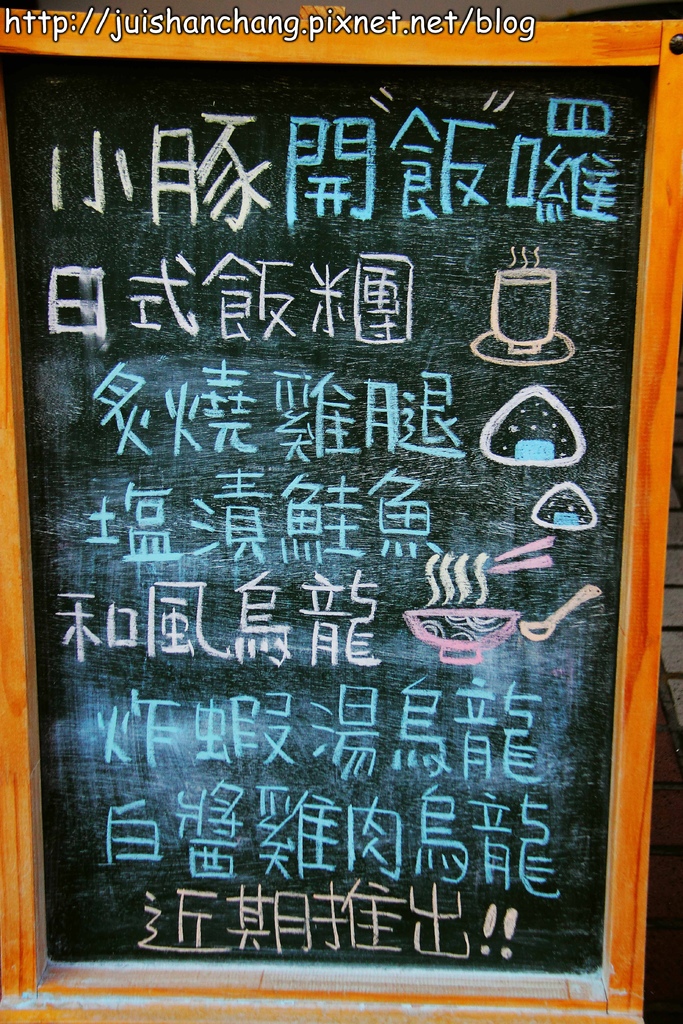 http://juishanchang.pixnet.net/blog
小豚開"飯"囉
日式飯糰
炙燒雞腿
塩漬鮭魚
和風烏龍
炸蝦湯烏龍
白醬雞肉烏龍
近期推出!!